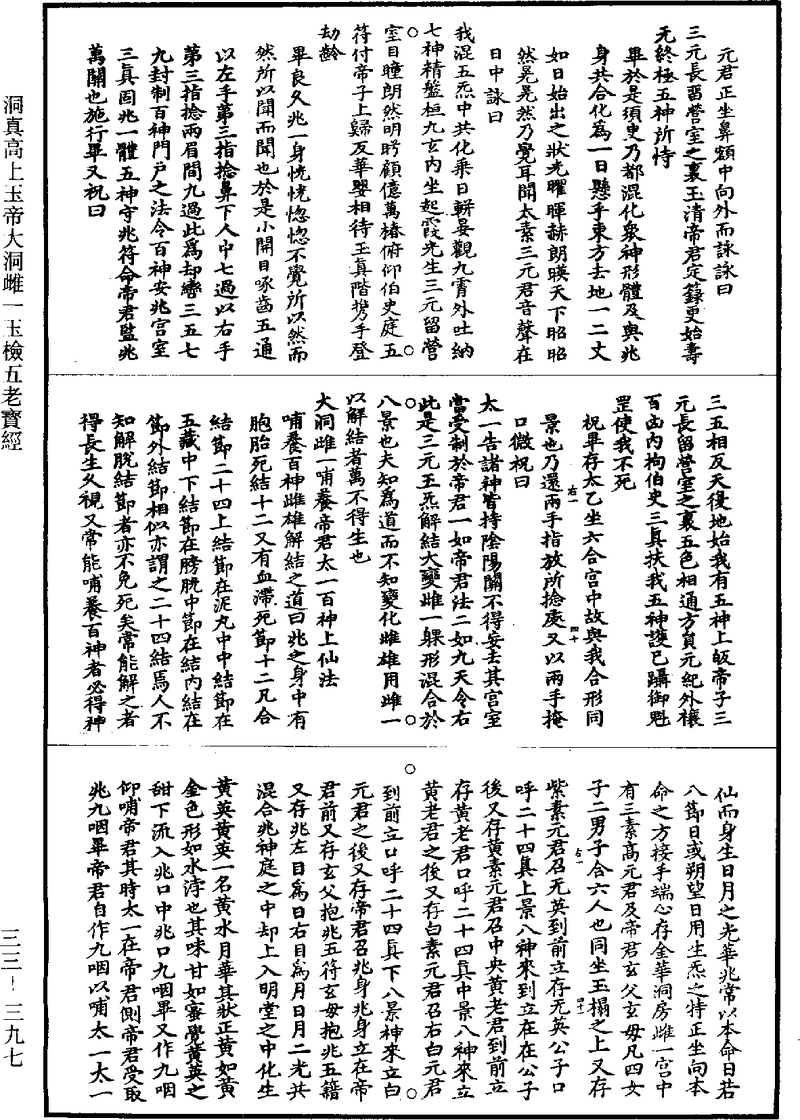 元君正坐鼻頞中向外而詠詠曰
三元長留營室之裏玉清帝君定籙更始壽
无終極五神所恃
畢於是須臾乃都混化衆神形體及與兆
身共合化為一日懸乎東方去地一二丈
如日始出之狀光曜暉赫朗暎天下昭昭
然晃晃然乃覺耳聞太素三元君音聲在
日中詠曰
我混五炁中共化乘日軿晏觀九霄外吐納
七神精盤桓九玄内坐起霞先生三元留營
室目瞳朗然明眄顧億萬椿俯仰伯史庭五
符付帝子上歸反華嬰相待玉真階携手登
劫齡
畢良久兆一身恍恍惚惚不覺所以然而
然所以聞而聞也於是小開目啄齒五通
以左手第三指捻鼻下人中七過以右手
第三指捻兩眉間九過此為却轡三五七
九封制百神門户之法令百神安兆宫室
三真固兆一體五神守兆符命帝君監兆
萬關也施行畢又祝曰
三五相反天復地始我有五神上皈帝子三
元長留營室之裏五色相通方員元紀外禳
百凶内拘伯史三真扶我五神護已躡御魁
罡使我不死
祝畢存太乙坐六合宫中故與我合形同
景也乃還兩手指放所捻處又以兩手掩
口微祝曰
太一告諸神皆持陰陽關不得妄去其宫室
當受制於帝君一如帝君法二如九天令右
此是三元玉炁解結大變雌一躶形混合於
八景也夫知為道而不知變化雌雄用雌一
以解結者萬不得生也
大洞雌一哺養帝君太一百神上仙法
哺養百神雌雄解結之道曰兆之身中有
胞胎死結十二又有血滯死節十二凡合
結節二十四上結節在泥丸中中結節在
五藏中下結節在膀胱中節在結内結在
節外結節相似亦謂之二十四結焉人不
知解脱結節者亦不免死矣常能解之者
得長生久視又常能哺養百神者必得神
仙而身生日月之光華兆常以本命日若
八節日或朔望日用生炁之時正坐向本
命之方接手端心存金華洞房雌一宫中
有三素高元君及帝君玄父玄母凡四女
子二男子合六人也同坐玉榻之上又存
紫素元君召无英到前立存无英公子口
呼二十四真上景八神來到立在在公子
後又存黄素元君召中央黄老君到前立
存黄老君口呼二十四真中景八神來立
黄老君之後又存白素元君召右白元君
到前立口呼二十四真下八景神來立白
元君之後又存帝君召兆身兆身立在帝
君前又存玄父抱兆五符玄母抱兆五籍
又存兆左目為日右目為月日月二光共
混合兆神庭之中却上入明堂之中化生
黄英黄英一名黄水月華其狀正黄如黄
金色形如水渟也其味甘如蜜覺黄英之
甜下流入兆口中兆口九咽畢又作九咽
仰哺帝君其時太一在帝君側帝君受取
兆九咽畢帝君自作九咽以哺太一太一
右一
四十
右一
四十一
洞真高上玉帝大洞雌一玉檢五老寶經
三三—三九七